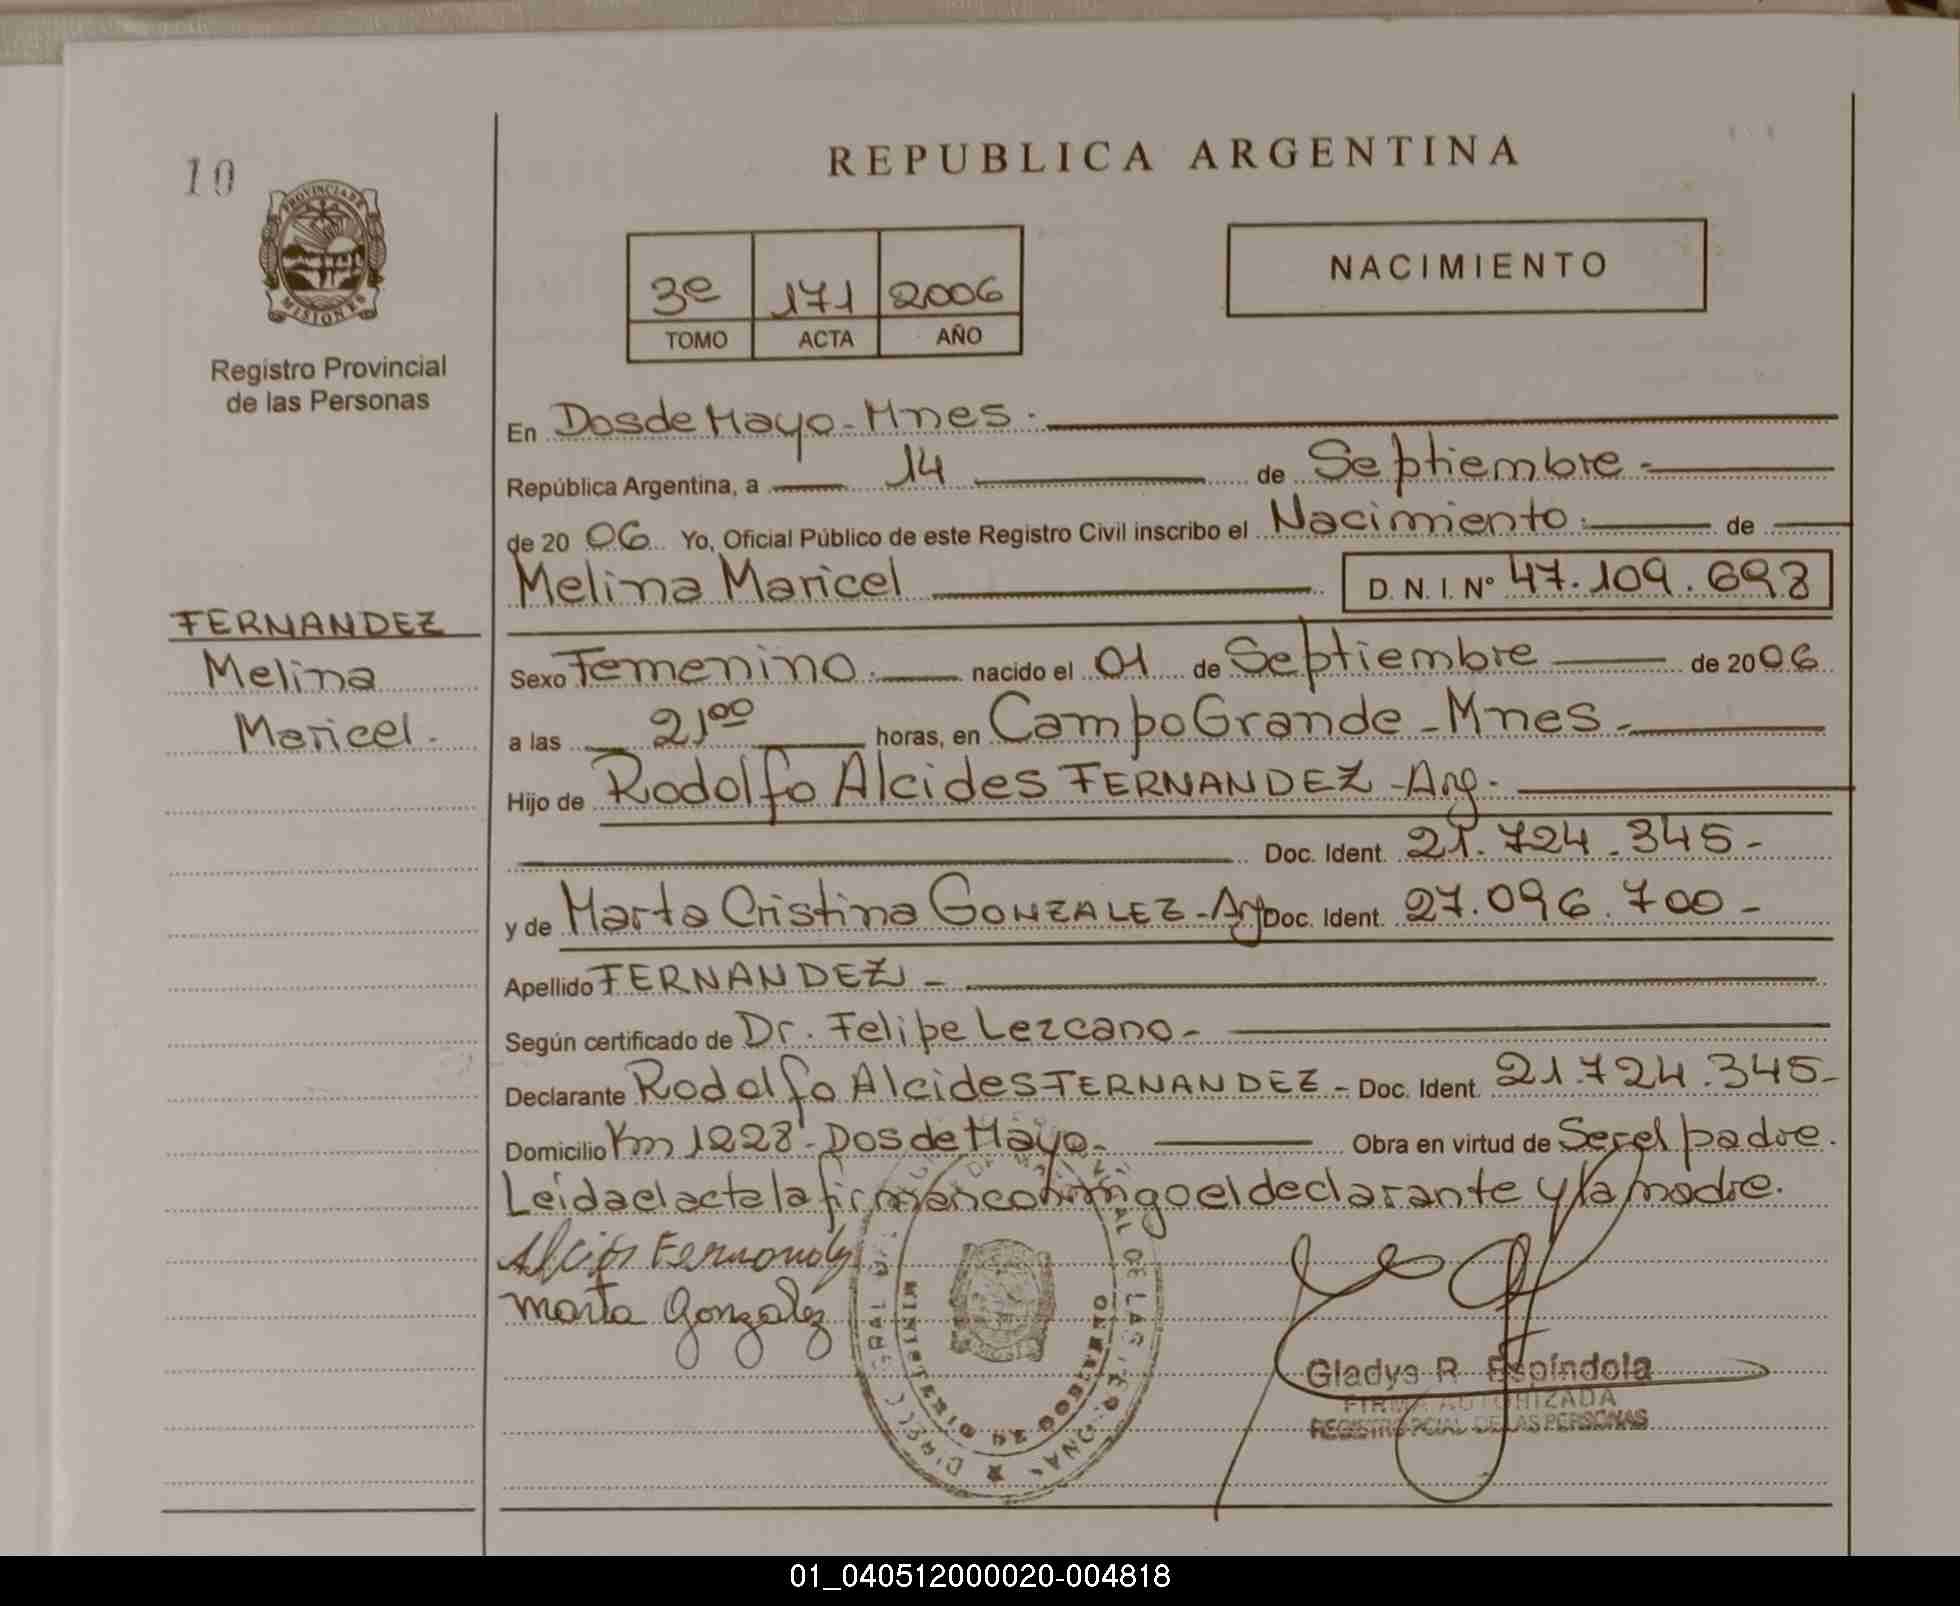 10
PROVINCIA DE
MISIONES
Registro Provincial
de las Personas
FERNANDEZ
Melina
Maricel.
REPUBLICA ARGENTINA
3e 171 2006
TOMO ACTA AÑO
NACIMIENTO
En Dos de Mayo - Mnes.
República Argentina, a 14 de Septiembre -
de 20 06 Yo, Oficial Público de este Registro Civil inscribo el Nacimiento. de
Melina Maricel D. N. I. Nº 47.109.698
Sexo Femenino. nacido el 01 de Septiembre de 20 06
a las 21⁰⁰ horas, en Campo Grande - Mnes -
Hijo de Rodolfo Alcides FERNANDEZ - Arg.
Doc. Ident. 21.724.345-
y de Marta Cristina GONZALEZ - Arg Doc. Ident. 27.096.700 -
Apellido FERNANDEZ -
Según certificado de Dr. Felipe Lezcano -
Declarante Rodolfo Alcides FERNANDEZ - Doc. Ident. 21.724.345-
Domicilio Km 1228 - Dos de Mayo - Obra en virtud de Ser el padre.
Leída el acta la firman conmigo el declarante y la madre.
Alcides Fernandez
Marta Gonzalez
MINISTERIO DE GOBIERNO
Gladys R. Espíndola
FIRMA AUTORIZADA
REGISTRO PCIAL DE LAS PERSONAS
01_040512000020-004818